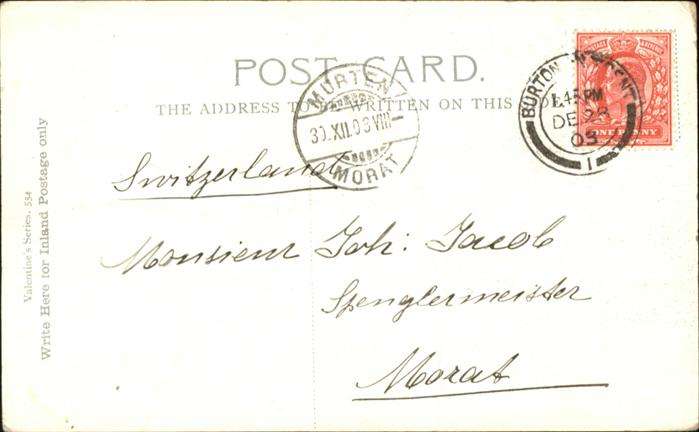 POST CARD.
THE ADDRESS TO BE WRITTEN ON THIS
MURTEN
30.XII.03 VIII
MORAT
BURTON
1.45 PM
DE 29
03
1
ONE PENNY
Switzerland
Monsieur Joh: Jacob
Spenglermeister
Morat
Valentine's Series. 554
Write Here for Inland Postage only